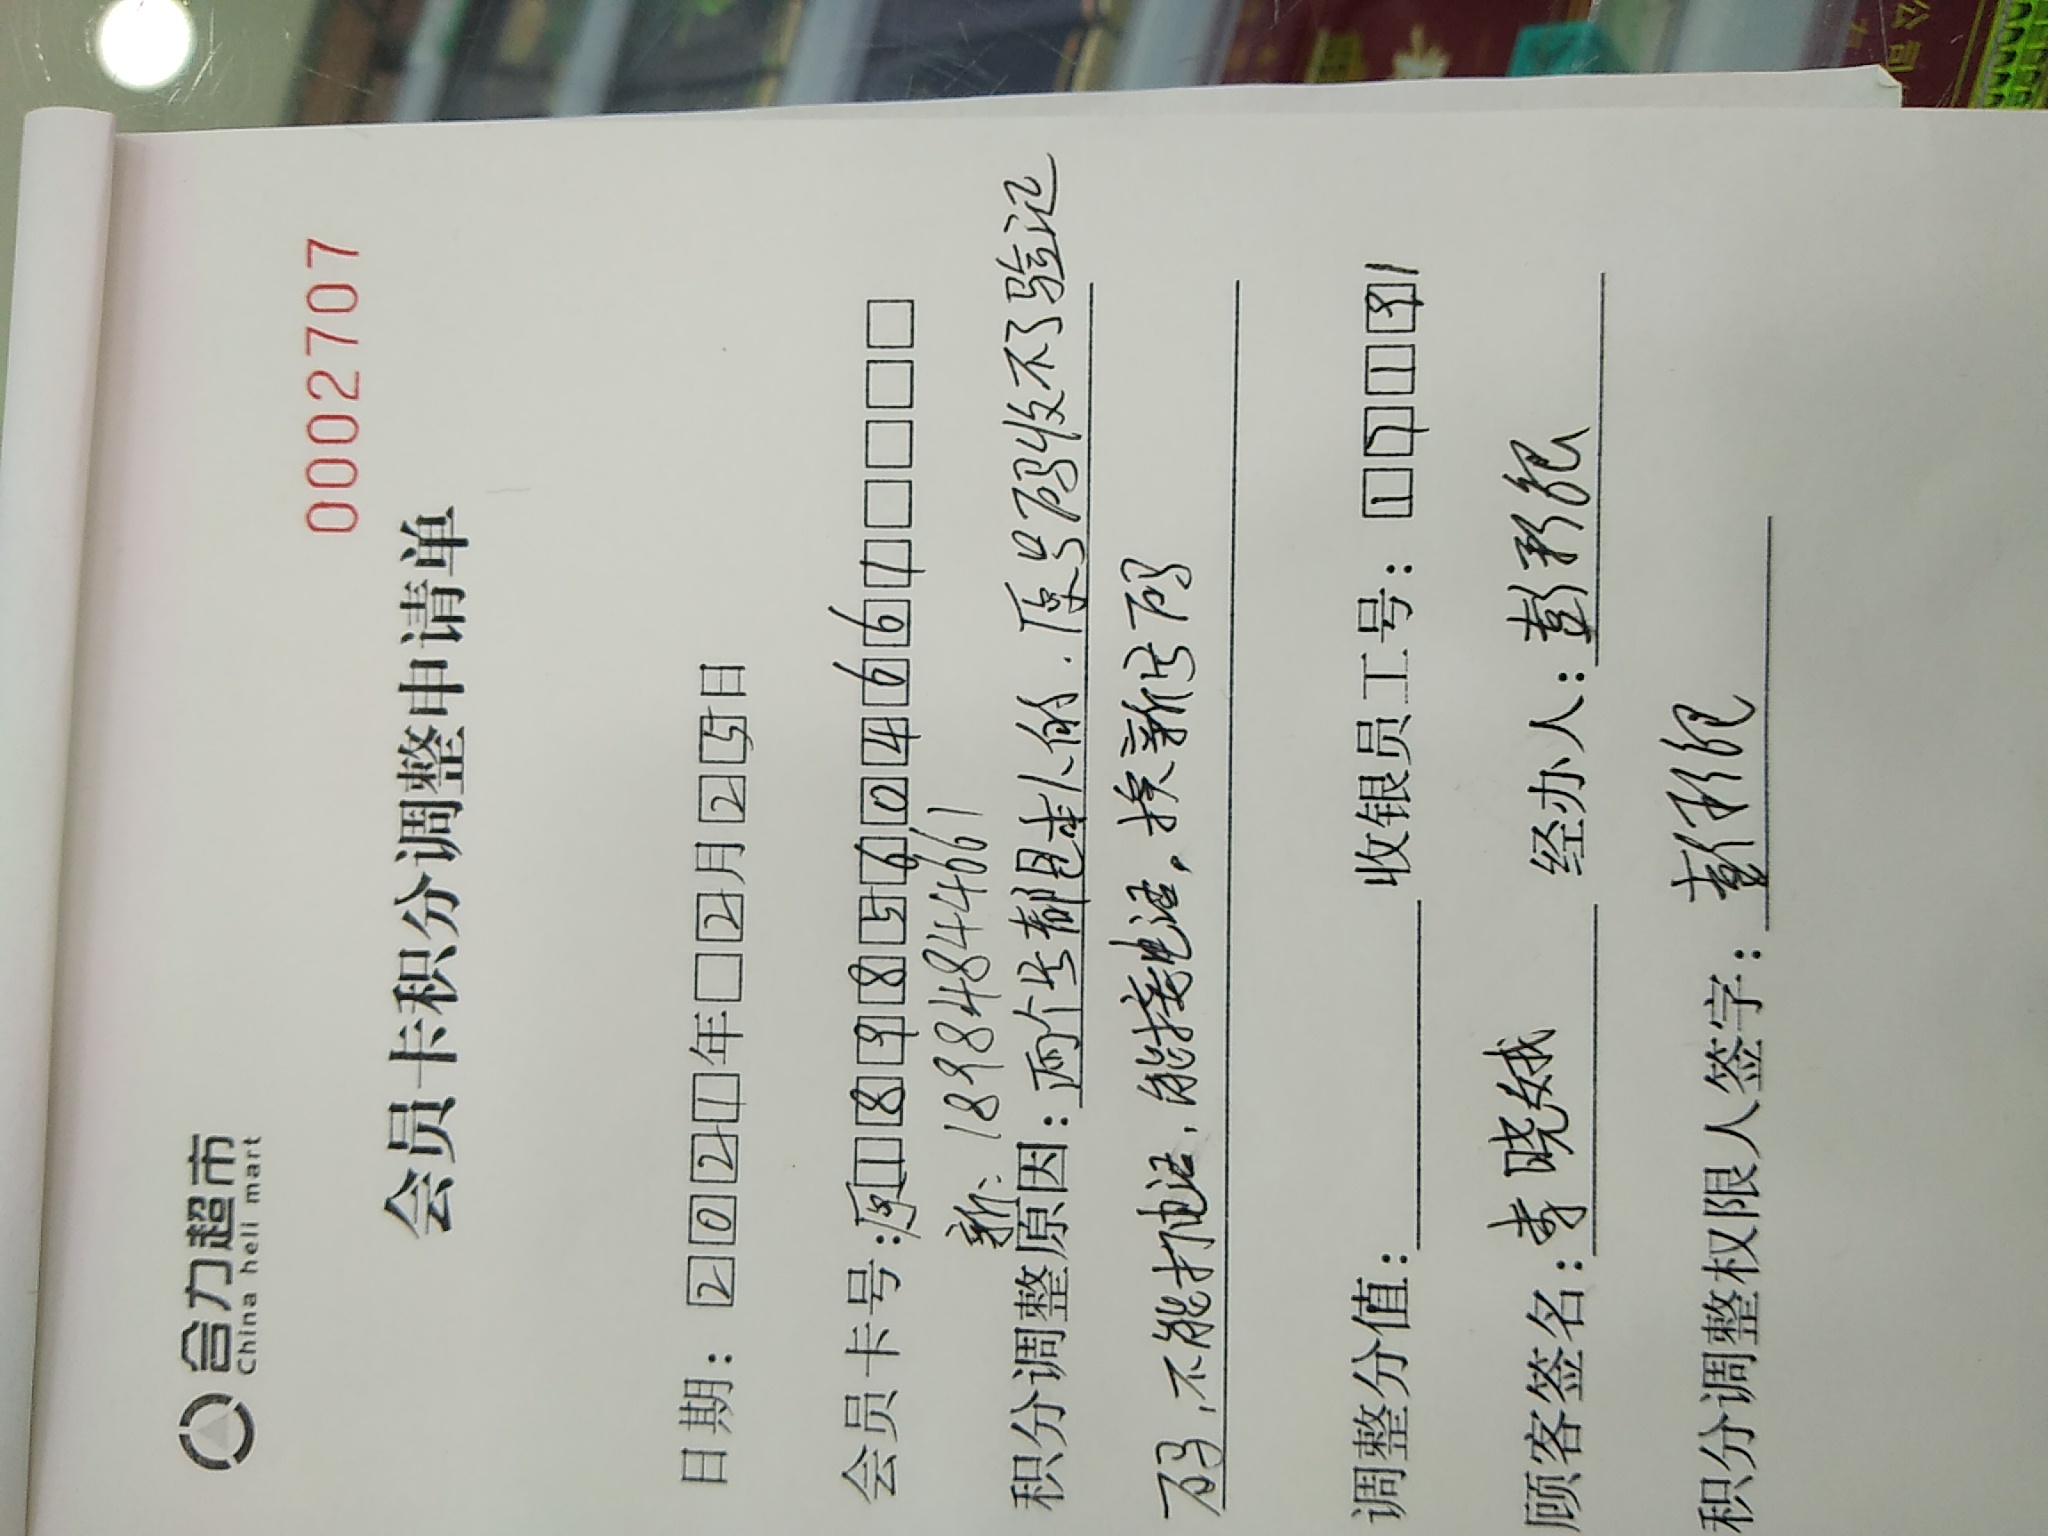 合力超市
China heli mart
0002707
会员卡积分调整申请单
日期：2021年 2月25日
会员卡号：原18985604661
新：18984844661
积分调整原因：两个号都是本人的.原号码收不了验证
码,不能打电话,能接电话,换新号码
调整分值： 收银员工号：17191
顾客签名：李晓娥 经办人：彭
积分调整权限人签字：彭
公司